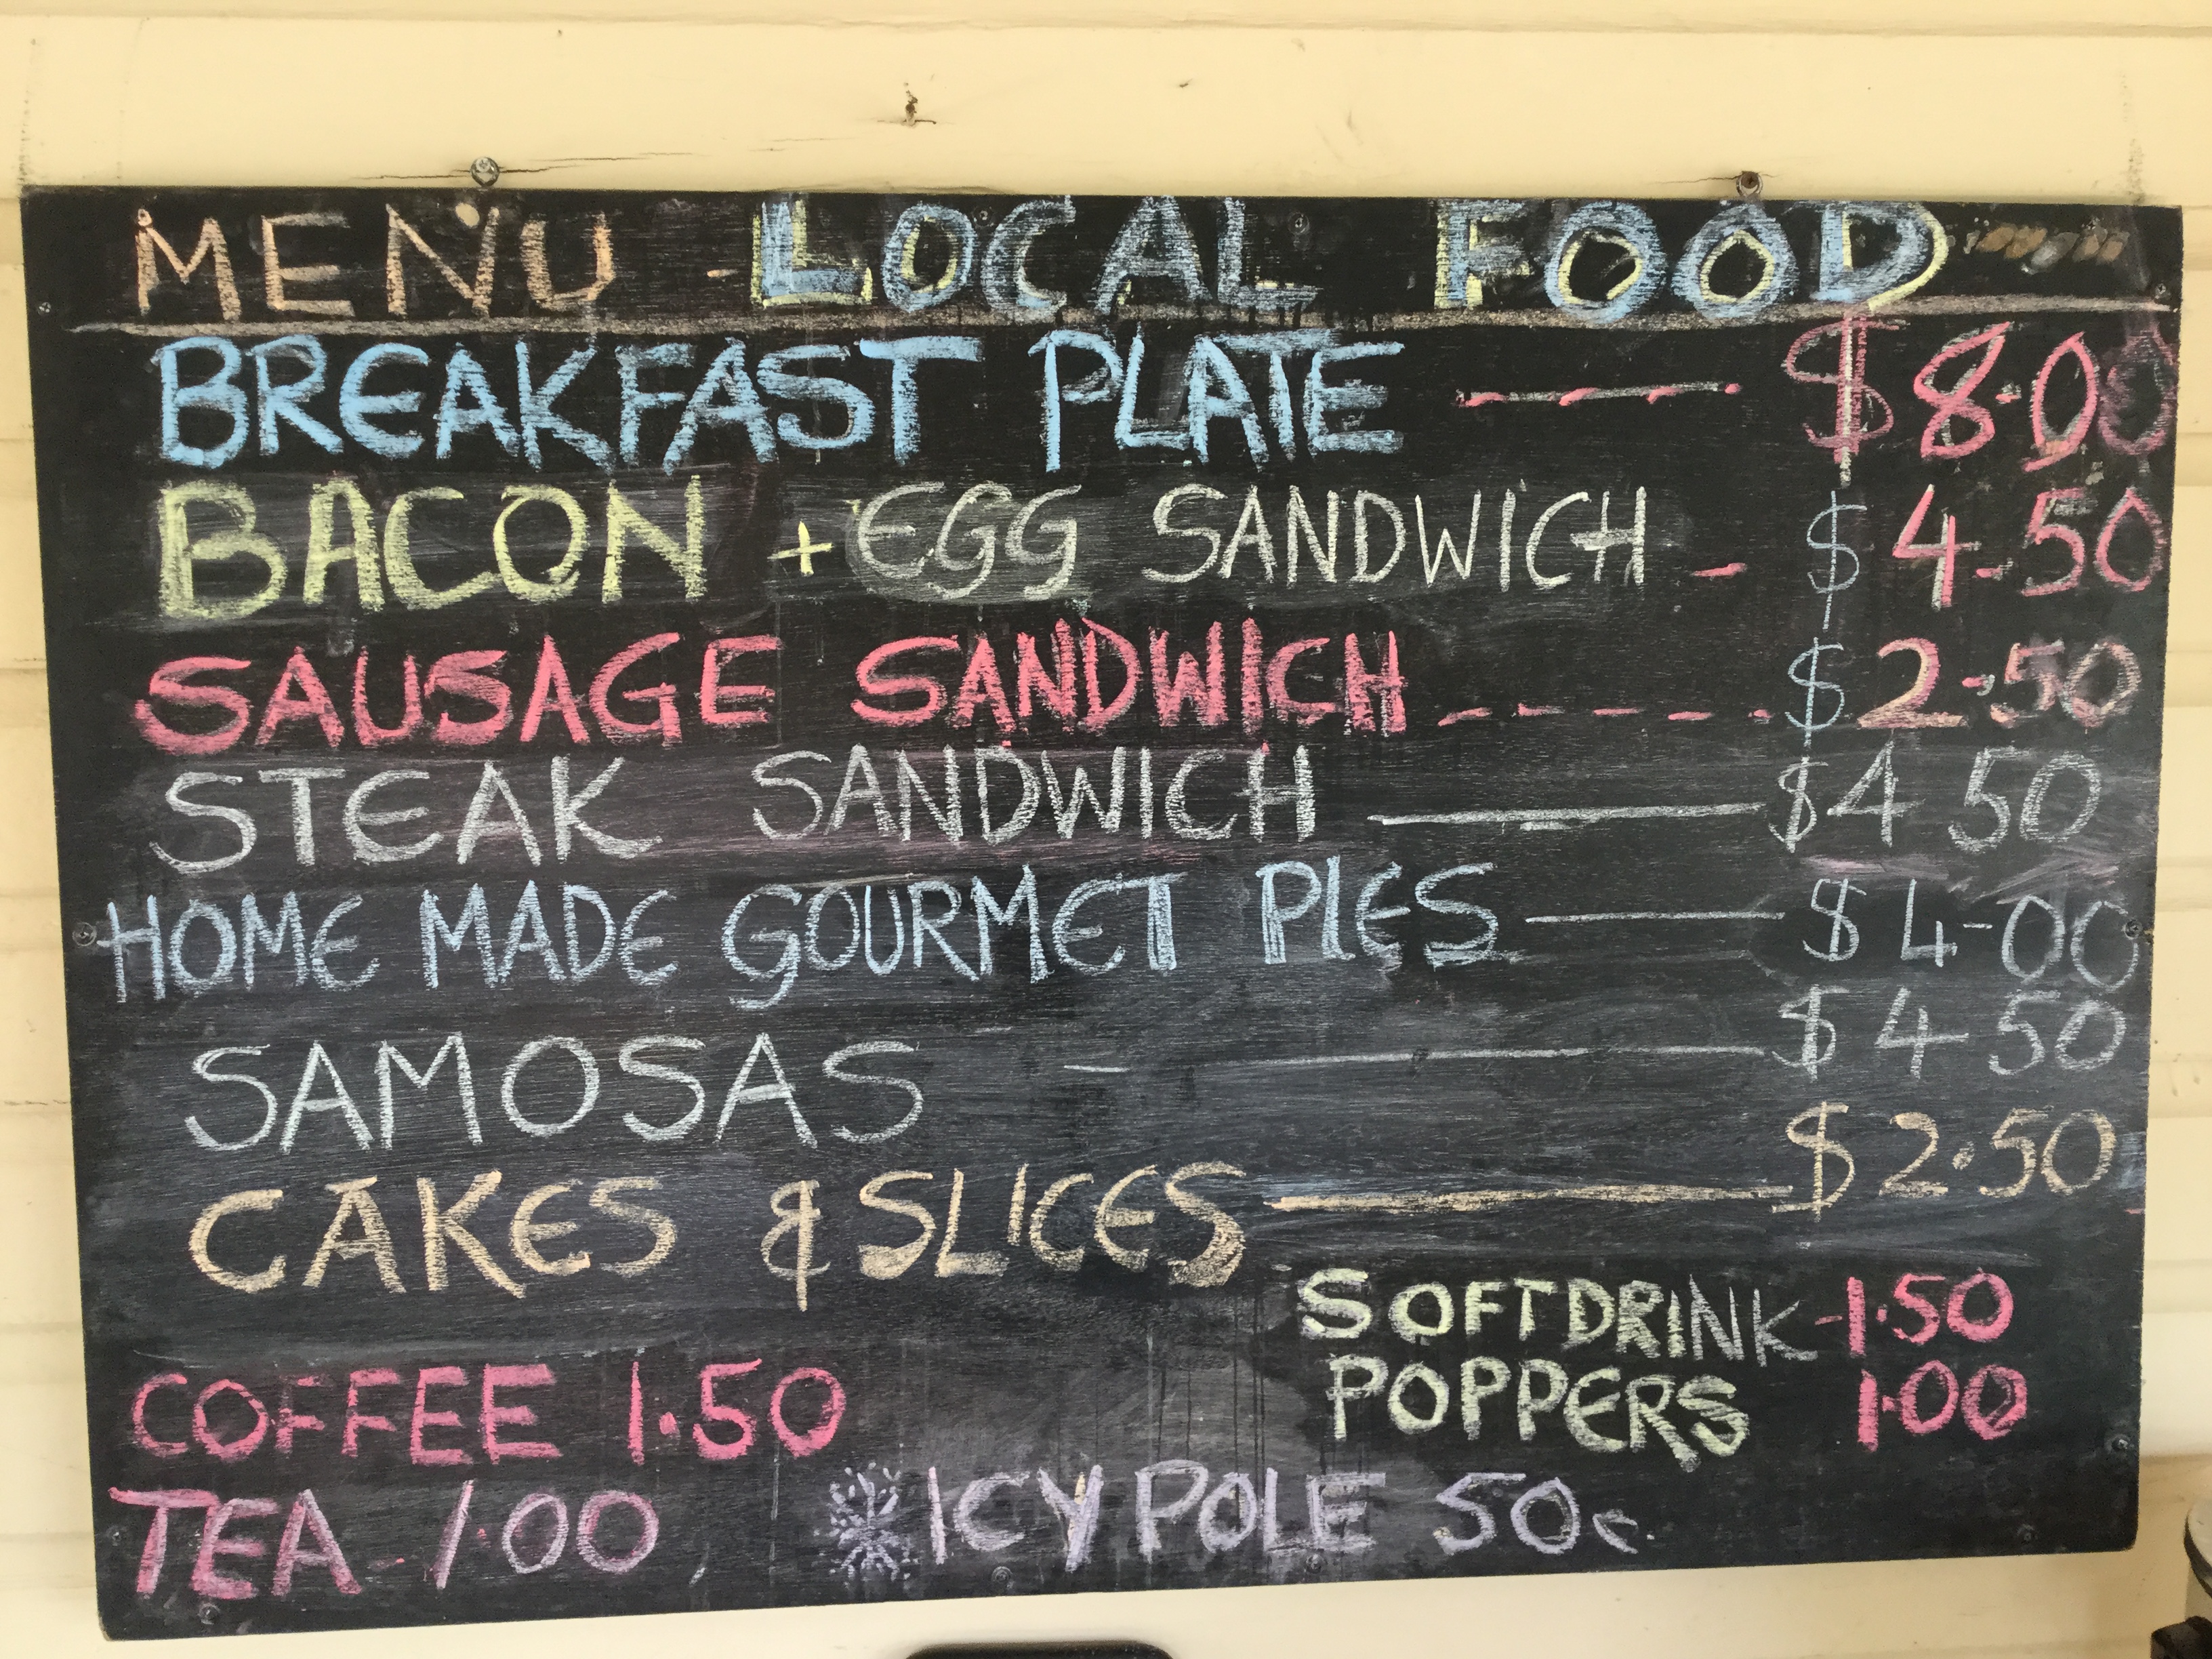 MENU - LOCAL FOOD
BREAKFAST PLATE --- $8.00
BACON + EGG SANDWICH - $4.50
SAUSAGE SANDWICH ----- $2.50
STEAK SANDWICH — $4 50
HOME MADE GOURMET PIES — $4-00
SAMOSAS - — $4 50
CAKES & SLICES — $2.50
SOFTDRINK -1.50
POPPERS 1.00
COFFEE 1.50
TEA 1.00
ICY POLE 50c